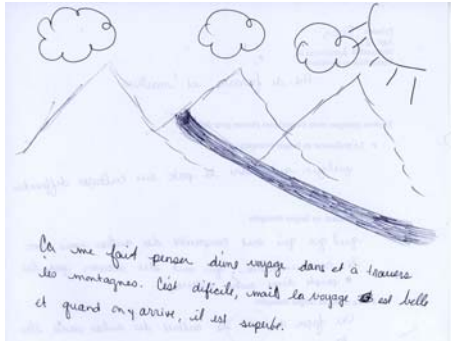 Ça me fait penser d'une voyage dans et à travers
les montagnes. C'est dificile, mais la voyage est belle
et quand on y arrive, il est superbe.